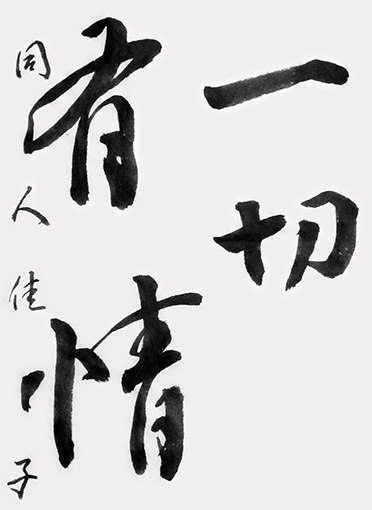 一切
有情
同人佳子